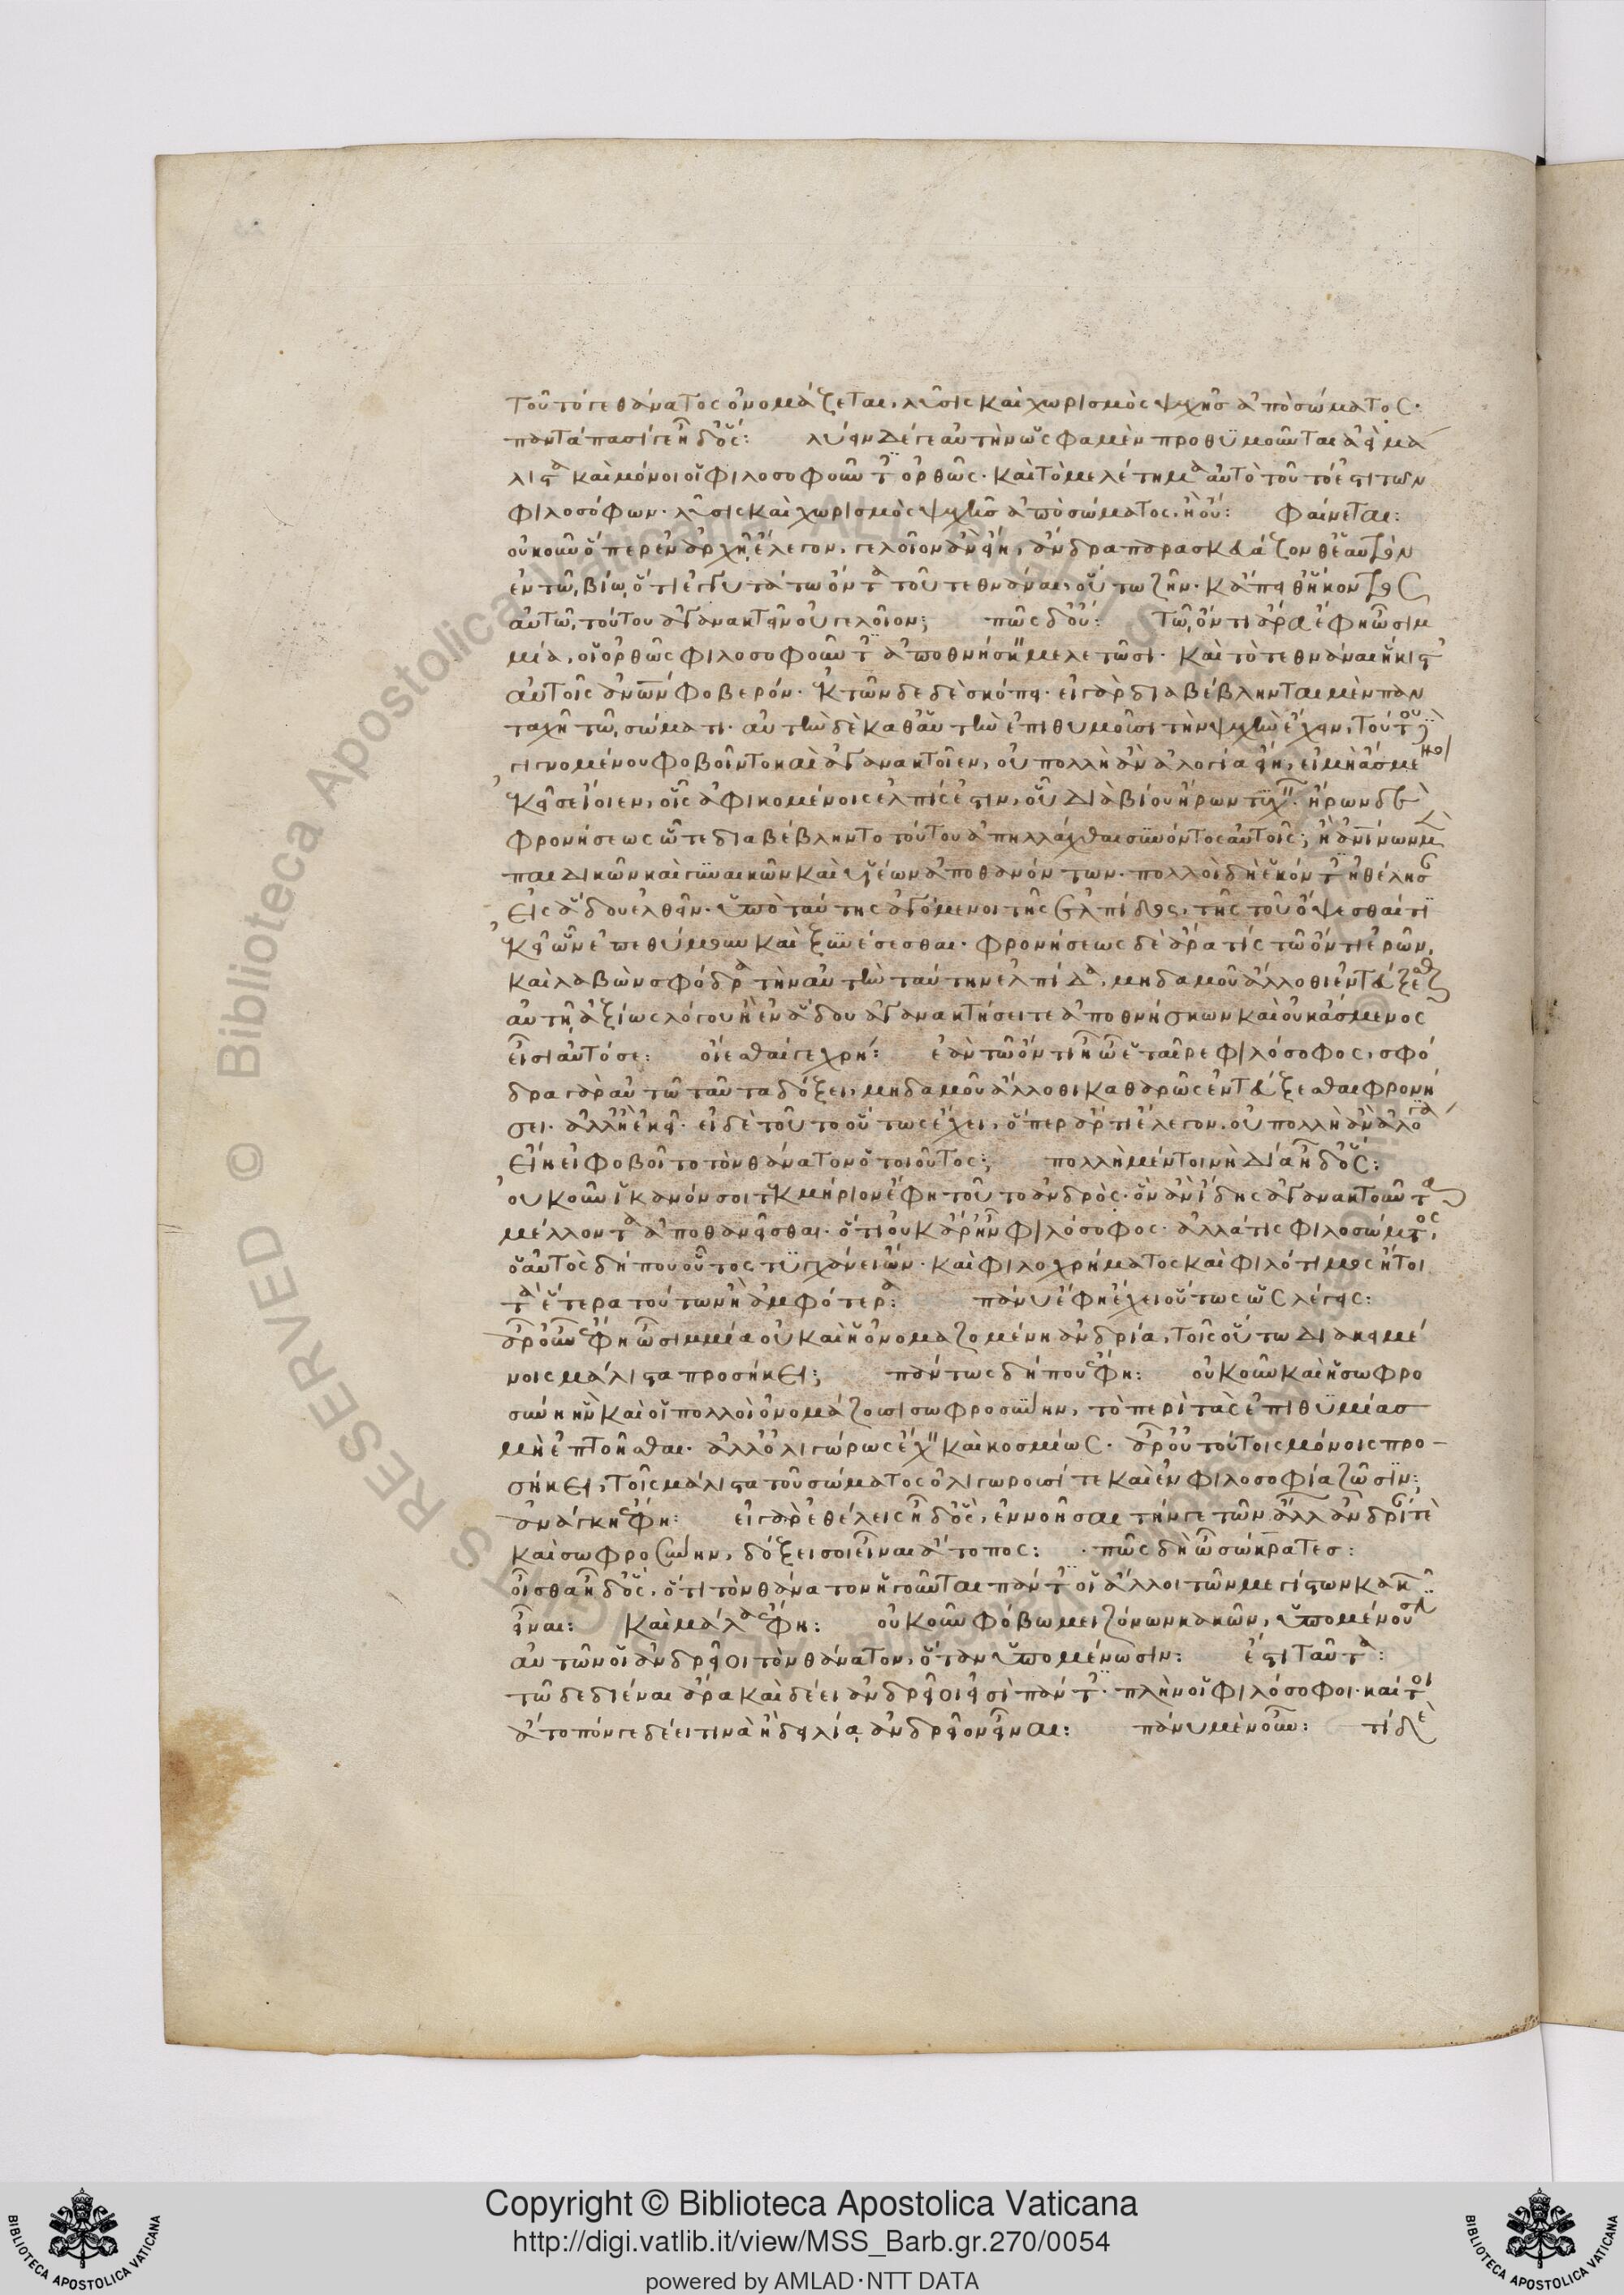 τοῦτό γε θάνατος ὀνομάζεται, λύσις καὶ χωρισμὸς ψυχῆς ἀπὸ σώματος·
παντάπασί γε ἦ δ' ὅς: λύειν δέ γε αὐτὴν ὥς φαμεν προθυμοῦνται ἀεὶ μά
λιστα καὶ μόνοι οἱ φιλοσοφοῦντες ὀρθῶς· καὶ τὸ μελέτημα αὐτὸ τοῦτό ἐστι τῶν
φιλοσόφων· λύσις καὶ χωρισμὸς ψυχῆς ἀπὸ σώματος· ἢ οὔ: φαίνεται:
οὐκοῦν ὅπερ ἐν ἀρχῇ ἔλεγον, γελοῖον ἂν εἴη, ἄνδρα παρασκευάζονθ' ἑαυτὸν
ἐν τῷ βίῳ, ὅτι ἐγγυτάτω ὄντα τοῦ τεθνάναι, οὕτω ζῆν· κἄπειθ' ἥκοντος
αὐτῷ τούτου ἀγανακτεῖν οὐ γελοῖον; πῶς δ' οὔ: τῷ ὄντι ἄρα ἔφη ὦ σιμ
μία, οἱ ὀρθῶς φιλοσοφοῦντες ἀποθνήσκειν μελετῶσι· καὶ τὸ τεθνάναι ἥκιστ'
αὐτοῖς ἀνθρώπων φοβερόν· ἐκ τῶνδε δὲ σκόπει· εἰ γὰρ διαβέβληνται μὲν παν
ταχῇ τῷ σώματι· αὐτὴν δὲ καθ' αὑτὴν ἐπιθυμοῦσι τὴν ψυχὴν ἔχειν, τούτου δὲ
γιγνομένου φοβοῖντο καὶ ἀγανακτοῖεν, οὐ πολλὴ ἂν ἀλογία εἴη, εἰ μὴ ἄσμενοι
ἐκεῖσε ἴοιεν, οἷς ἀφικομένοις ἐλπίς ἐστιν, οὗ διὰ βίου ἤρων τυχεῖν· ἤρων δὲ
φρονήσεως ᾧ τε διαβέβληντο τούτου ἀπηλλάχθαι συνόντος αὐτοῖς; ἢ ἀνθρωπίνων μὲν
παιδικῶν καὶ γυναικῶν καὶ υἱέων ἀποθανόντων· πολλοὶ δὴ ἑκόντες ἠθέλησαν
εἰς ᾅδου ἐλθεῖν· ὑπὸ ταύτης ἀγόμενοι τῆς ἐλπίδος, τῆς τοῦ ὄψεσθαί τι
ἐκεῖ ὧν ἐπεθύμουν καὶ ξυνέσεσθαι· φρονήσεως δὲ ἄρα τίς τῷ ὄντι ἐρῶν,
καὶ λαβὼν σφόδρα τὴν αὐτὴν ταύτην ἐλπίδα, μηδαμοῦ ἄλλοθι ἐντεύξεσθαι
αὐτῇ ἀξίως λόγου ἢ ἐν ᾅδου ἀγανακτήσει τε ἀποθνήσκων καὶ οὐκ ἄσμενος
εἶσι αὐτόσε: οἴεσθαί γε χρή: ἐὰν τῷ ὄντι ᾖ ὦ ἑταῖρε φιλόσοφος, σφό
δρα γὰρ αὐτῷ ταῦτα δόξει, μηδαμοῦ ἄλλοθι καθαρῶς ἐντεύξεσθαι φρονή
σει· ἀλλ' ἢ ἐκεῖ· εἰ δὲ τοῦτο οὕτως ἔχει, ὅπερ ἄρτι ἔλεγον, οὐ πολλὴ ἂν ἀλογία
εἴη εἰ φοβοῖτο τὸν θάνατον ὁ τοιοῦτος; πολλὴ μέντοι νὴ δία ἦ δ' ὅς:
οὐκοῦν ἱκανόν σοι τεκμήριον ἔφη τοῦτο ἀνδρὸς· ὃν ἂν ἴδῃς ἀγανακτοῦντα
μέλλοντα ἀποθανεῖσθαι· ὅτι οὐκ ἄρ' ἦν φιλόσοφος· ἀλλά τις φιλοσώματος,
ὁ αὐτὸς δή που οὗτος τυγχάνει ὤν· καὶ φιλοχρήματος καὶ φιλότιμος ἤτοι
τὰ ἕτερα τούτων ἢ ἀμφότερα: πάνυ ἔφη ἔχει οὕτως ὡς λέγεις:
ἆρ' οὖν ἔφη ὦ σιμμία οὐ καὶ ἡ ὀνομαζομένη ἀνδρία, τοῖς οὕτω διακειμέ
νοις μάλιστα προσήκει; πάντως δήπου ἔφη: οὐκοῦν καὶ ἡ σωφρο
σύνη ἣν καὶ οἱ πολλοὶ ὀνομάζουσι σωφροσύνην, τὸ περὶ τὰς ἐπιθυμίας
μὴ ἐπτοῆσθαι· ἀλλ' ὀλιγώρως ἔχειν καὶ κοσμίως· ἆρ' οὐ τούτοις μόνοις προ-
σήκει, τοῖς μάλιστα τοῦ σώματος ὀλιγωροῦσί τε καὶ ἐν φιλοσοφίᾳ ζῶσιν;
ἀνάγκη ἔφη: εἰ γὰρ ἐθέλεις ἦ δ' ὅς, ἐννοῆσαι τήν γε τῶν ἄλλων ἀνδρίαν τε
καὶ σωφροσύνην, δόξει σοι εἶναι ἄτοπος: πῶς δὴ ὦ σώκρατες:
οἶσθα ἦ δ' ὅς, ὅτι τὸν θάνατον ἡγοῦνται πάντες οἱ ἄλλοι τῶν μεγίστων κακῶν
εἶναι: καὶ μάλα ἔφη: οὐκοῦν φόβῳ μειζόνων κακῶν, ὑπομένουσιν
αὐτῶν οἱ ἀνδρεῖοι τὸν θάνατον, ὅταν ὑπομένωσιν: ἔστι ταῦτα:
τῷ δεδιέναι ἄρα καὶ δέει ἀνδρεῖοι εἰσὶ πάντες· πλὴν οἱ φιλόσοφοι· καίτοι
ἄτοπόν γε δέει τινὰ ἢ δειλίᾳ ἀνδρεῖον εἶναι: πάνυ μὲν οὖν: τί δὲ
Copyright © Biblioteca Apostolica Vaticana
http://digi.vatlib.it/view/MSS_Barb.gr.270/0054
powered by AMLAD·NTT DATA
BIBLIOTECA APOSTOLICA VATICANA
BIBLIOTECA APOSTOLICA VATICANA